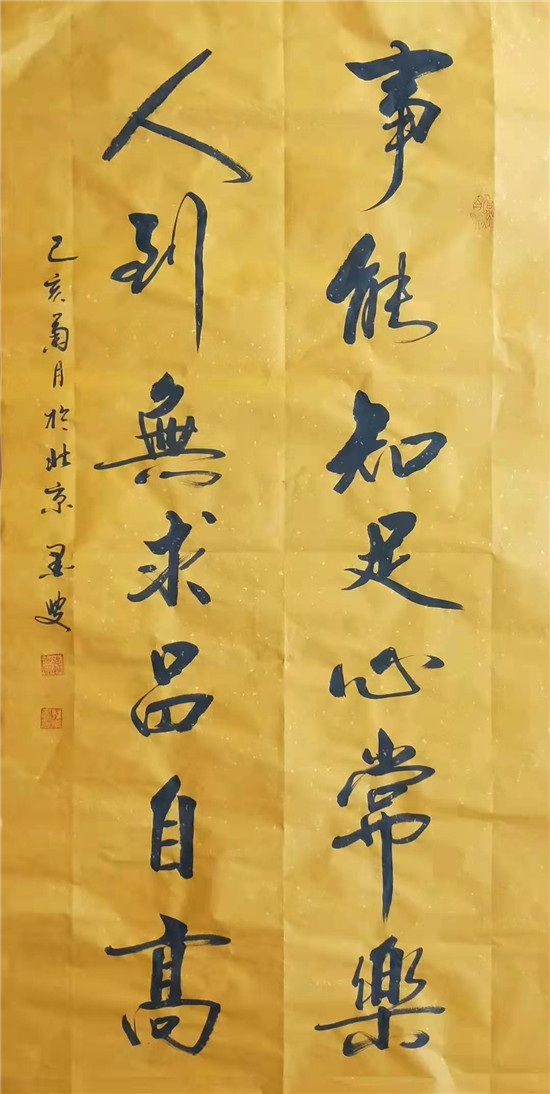 事能知足心常樂
人到無求品自高
己亥菊月於北京墨叟